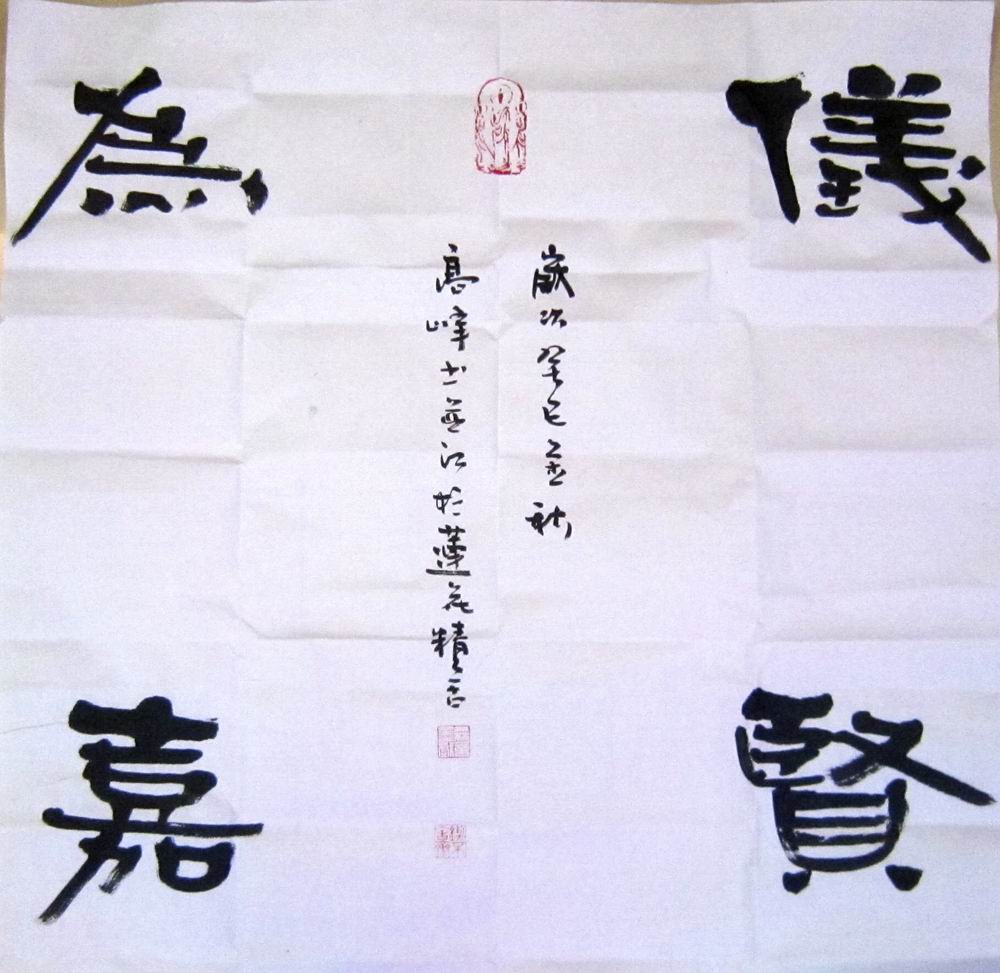 儀賢
為嘉
歲次癸巳金秋
高峰書並記於蓮花精舍